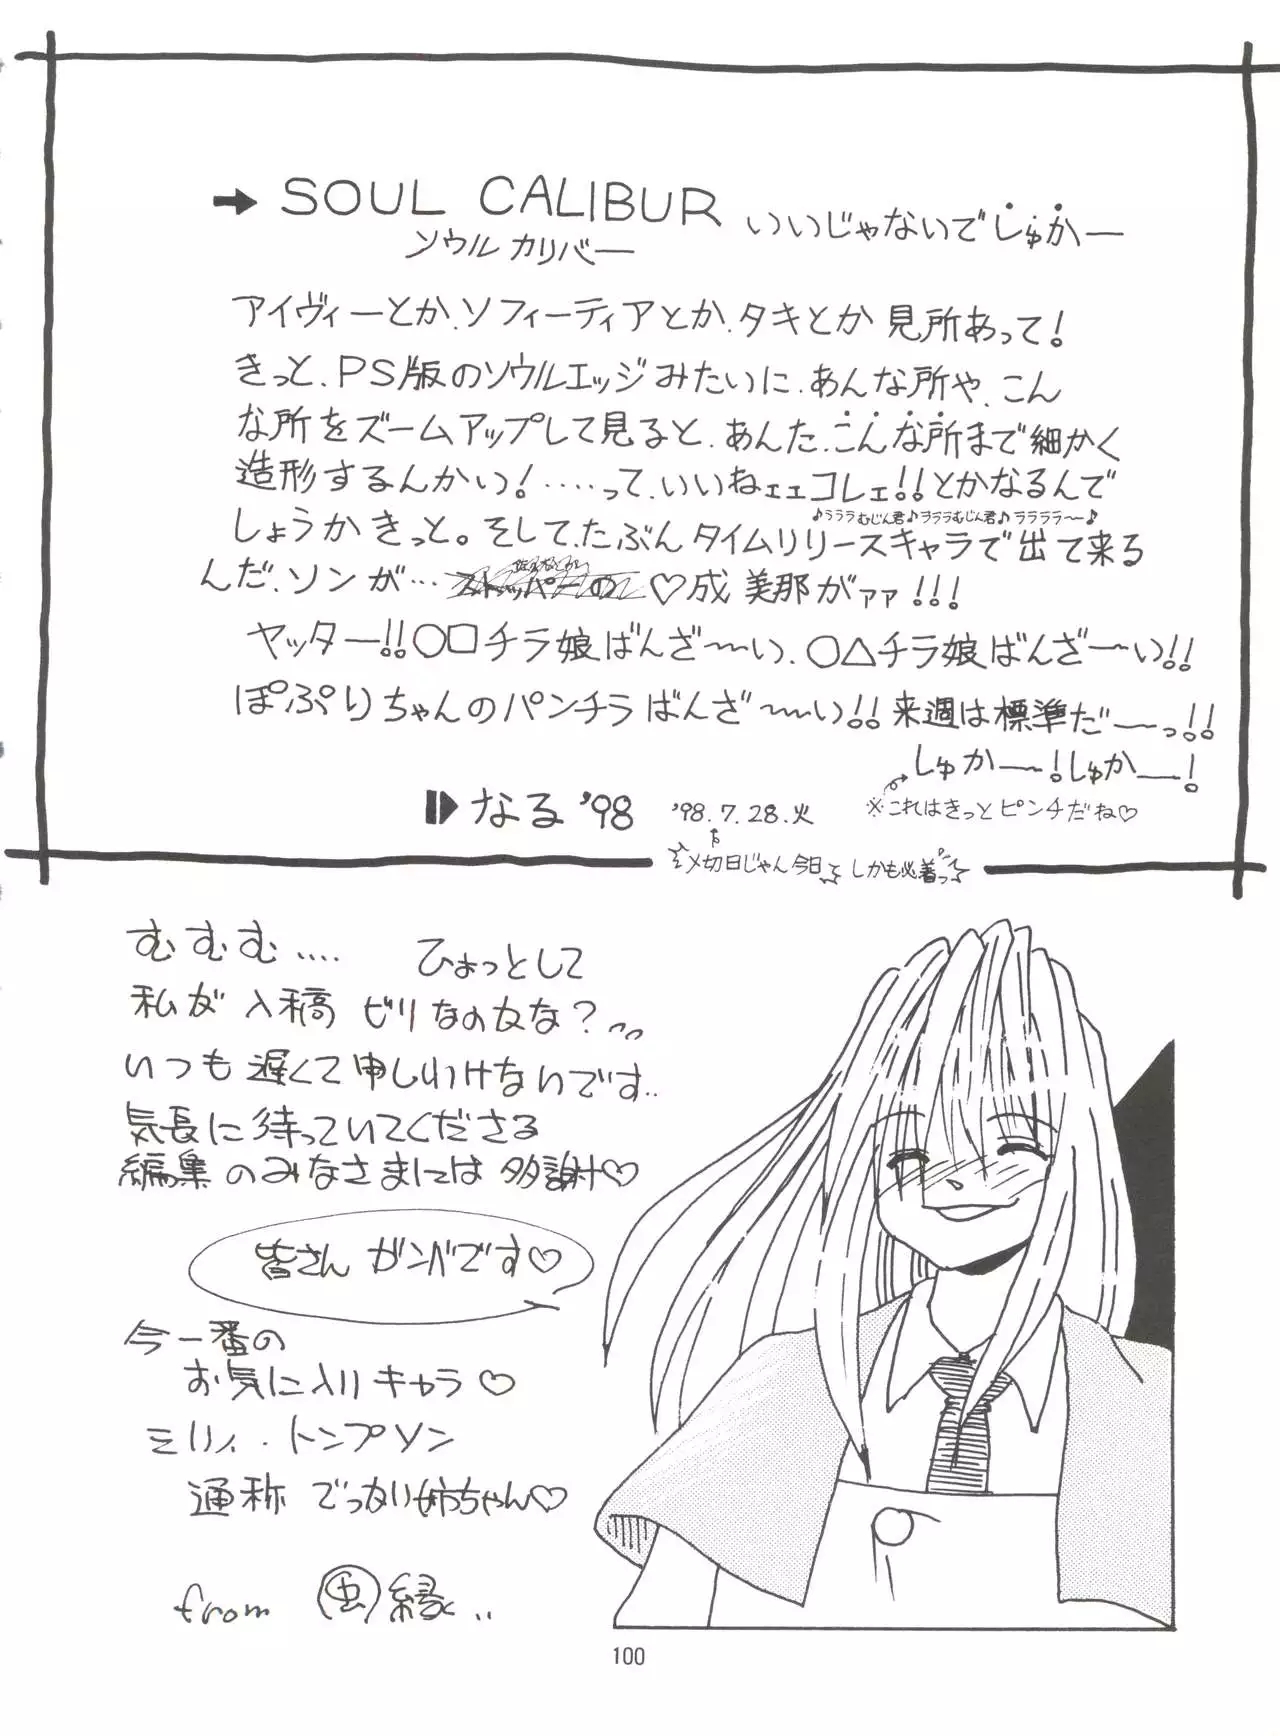 ➡ SOUL CALIBUR いいじゃないでしゅかー
ソウル カリバー
アイヴィーとか、ソフィーティアとか、タキとか 見所あって！
きっと、PS版のソウルエッジみたいに、あんな所や、こん
な所をズームアップして見ると、あんた、こんな所まで細かく
造形するんかい！……って、いいねェェコレェ!!とかなるんで
♪ラララむじん君♪ラララむじん君♪ララララ〜♪
しょうかきっと。そして、たぶんタイムリリースキャラで出て来る
んだ、ソンが… ♡成美那がァァ!!!
ヤッター!!○□チラ娘ばんざ〜い、○△チラ娘ばんざーい!!
ぽぷりちゃんのパンチラばんざ〜い!!来週は標準だーっ!!
しゅかー！しゅかー！
※これはきっとピンチだね♡
なる '98
'98.7.28.火
〆切日じゃん今日 しかも必着っ
むむむ‥‥ ひょっとして
私が入稿ビリなのかな？
いつも遅くて申しわけないです‥
気長に待っていてくださる
編集のみなさまには多謝♡
皆さん ガンバです♡
今一番の
お気に入りキャラ♡
ミリィ・トンプソン
通称 でっかい姉ちゃん♡
from 虫縁‥
100